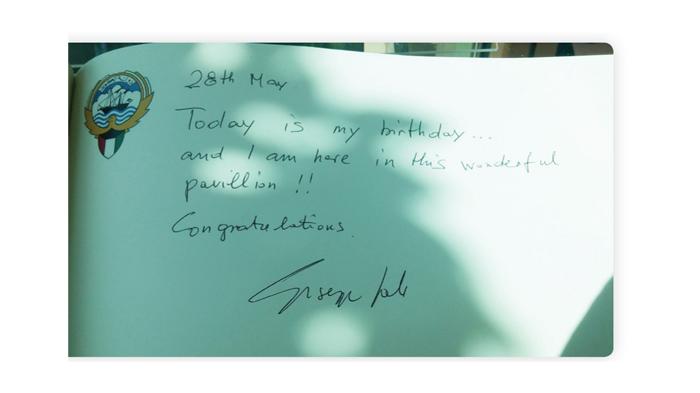 28th May
Today is my birthday...
and I am here in this wonderful
pavillion !!
Congratulations.